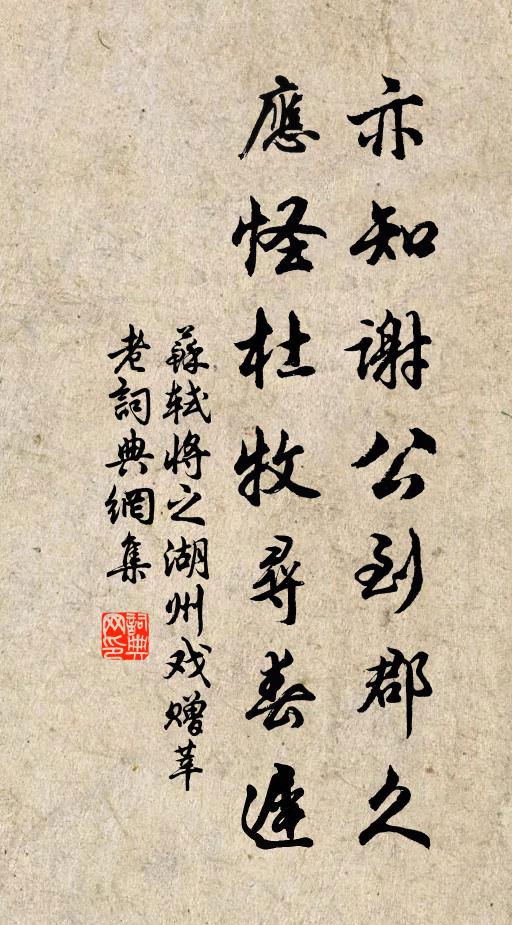 亦知謝公到郡久
應怪杜牧尋春遲
蘇軾將之湖州戏赠莘
老詞典網集
詞典网印